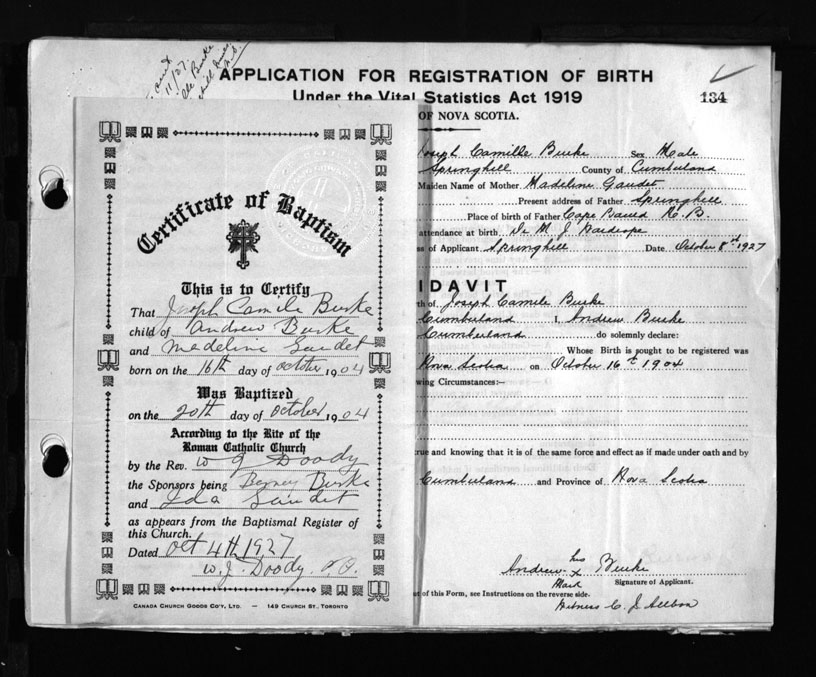 Burke
APPLICATION FOR REGISTRATION OF BIRTH
Under the Vital Statistics Act 1919
134
OF NOVA SCOTIA.
Joseph Camille Burke Sex Male
Springhill County of Cumberland
Maiden Name of Mother Madeline Gaudet
Present address of Father Springhill
Place of birth of Father Cape Bauld N.B.
attendance at birth Dr M. J.
ss of Applicant Springhill Date October 8th 1927
IDAVIT
th of Joseph Camile Burke
Cumberland I, Andrew Burke
Cumberland do solemnly declare:
Whose Birth is sought to be registered was
Nova Scotia on October 16th 1904
wing Circumstances:-
rue and knowing that it is of the same force and effect as if made under oath and by
Cumberland and Province of Nova Scotia
Andrew his x Burke
Mark Signature of Applicant.
t of this Form, see Instructions on the reverse side.
Witness C. J.
Certificate of Baptism
This is to Certify
That Joseph Camile Burke
child of Andrew Burke
and Madeline Gaudet
born on the 16th day of October 1904
Was Baptized
on the 20th day of October 1904
According to the Rite of the
Roman Catholic Church
by the Rev. W J Doody
the Sponsors being Burke
and Ida Gaudet
as appears from the Baptismal Register of
this Church.
Dated Oct 4th 1927
W. J. Doody, P.P.
CANADA CHURCH GOODS CO'Y, LTD. — 149 CHURCH ST., TORONTO